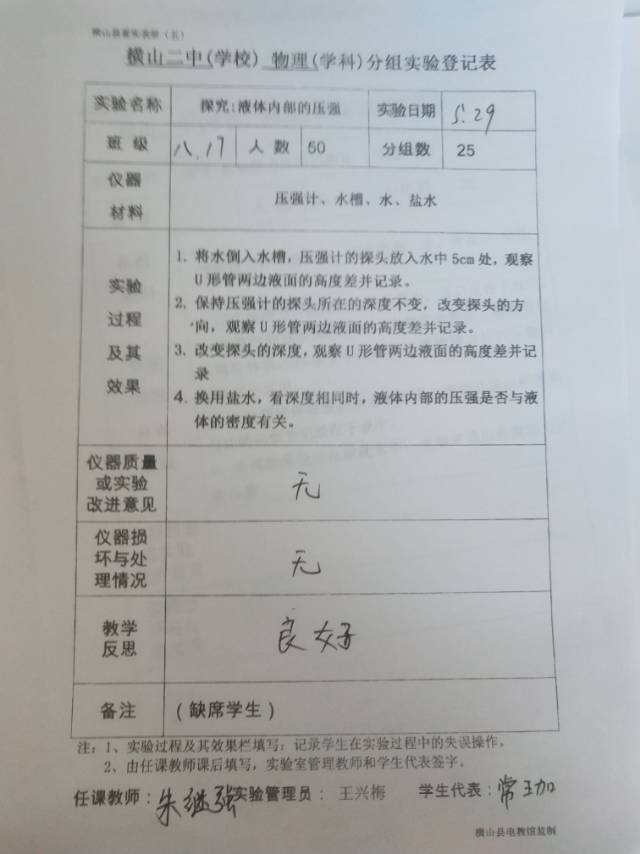 横山二中(学校) 物理(学科)分组实验登记表
实验名称 探究:液体内部的压强 实验日期 5.29
班 级 八.17 人 数 50 分组数 25
仪器
材料
压强计、水槽、水、盐水
实验
过程
及其
效果
1. 将水倒入水槽，压强计的探头放入水中5cm处，观察
U形管两边液面的高度差并记录。
2. 保持压强计的探头所在的深度不变，改变探头的方
向，观察U形管两边液面的高度差并记录。
3. 改变探头的深度，观察U形管两边液面的高度差并记
录
4. 换用盐水，看深度相同时，液体内部的压强是否与液
体的密度有关。
仪器质量
或实验
改进意见
无
仪器损
坏与处
理情况
无
教学
反思
良好
备注 (缺席学生)
注：1、实验过程及其效果栏填写：记录学生在实验过程中的失误操作。
2、由任课教师课后填写，实验室管理教师和学生代表签字。
任课教师：朱继强 实验管理员：王兴梅 学生代表：常
横山县电教馆监制